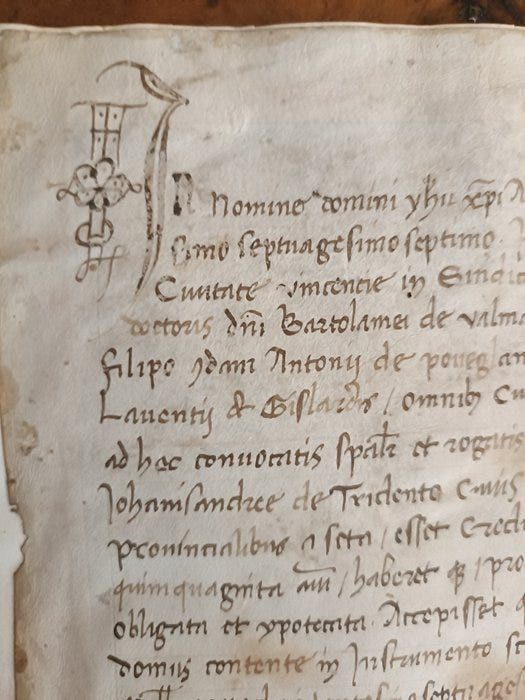 IN Nomine domini yhu xpi A
simo septuagesimo septimo
Civitate vincencie in Sindic
doctoris dni Bartolamei de valma
filipo qdam Antonii de poveglan
Laventij & Gislardis / omnib Cu
ad hoc convocatis spalr et rogatis
Johanisandree de Tridento Civis
provincialibus a seta / esset Cred
quinquaginta auri / haberet q / pro
obligata et ypotecata. Accepisset
domus contente in Instrumento sc
septuage